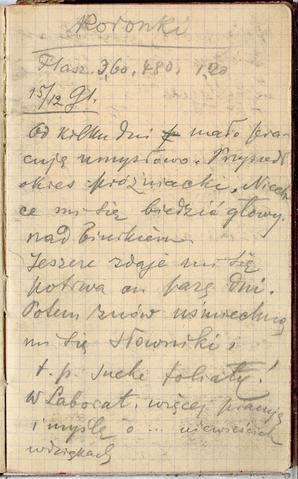 Koronki
Flasz. 3,60, 480, 1,20
15/12 91.
Od kilku dni mało pra-
cują umysłowo. Przyszedł
okres próżniacki. Niechce
ce mi się biedzić głowy
nad
Jeszcze zdaje mi się
potrwa on parę dni.
Potem znów uśmiechną
mi się słowniki i
t. p. suche foliały!
W Laborat. więcej pracuję
i myślę o ... niewieścich
wdziękach